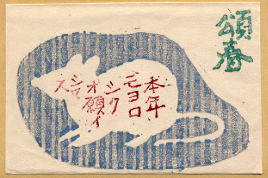 頌春
本年
モヨロ
シク
オ願イ
シマ
ス